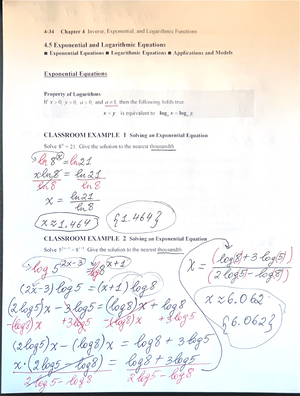 4-34 Chapter 4 Inverse, Exponential, and Logarithmic Functions
4.5 Exponential and Logarithmic Equations
■ Exponential Equations ■ Logarithmic Equations ■ Applications and Models
Exponential Equations
Property of Logarithms
If x > 0, y > 0, a > 0, and a ≠ 1, then the following holds true.
x = y is equivalent to logₐ x = logₐ y.
CLASSROOM EXAMPLE 1 Solving an Exponential Equation
Solve 8ˣ = 21. Give the solution to the nearest thousandth.
ln 8^x = ln 21
x ln 8 = ln 21
ln 8 ln 8
x = ln 21 / ln 8
x ≈ 1.464 {1.464}
CLASSROOM EXAMPLE 2 Solving an Exponential Equation
Solve 5^(2x−3) = 8^(x+1). Give the solution to the nearest thousandth.
log 5^(2x-3) = log 8^(x+1)
(2x-3) log 5 = (x+1) log 8
(2 log 5) x - 3 log 5 = (log 8) x + log 8
-(log 8) x + 3 log 5 -(log 8) x + 3 log 5
(2 log 5) x - (log 8) x = log 8 + 3 log 5
x · (2 log 5 - log 8) = log 8 + 3 log 5
2 log 5 - log 8 2 log 5 - log 8
x = (log 8 + 3 log 5) / (2 log 5 - log 8)
x ≈ 6.062
{6.062}